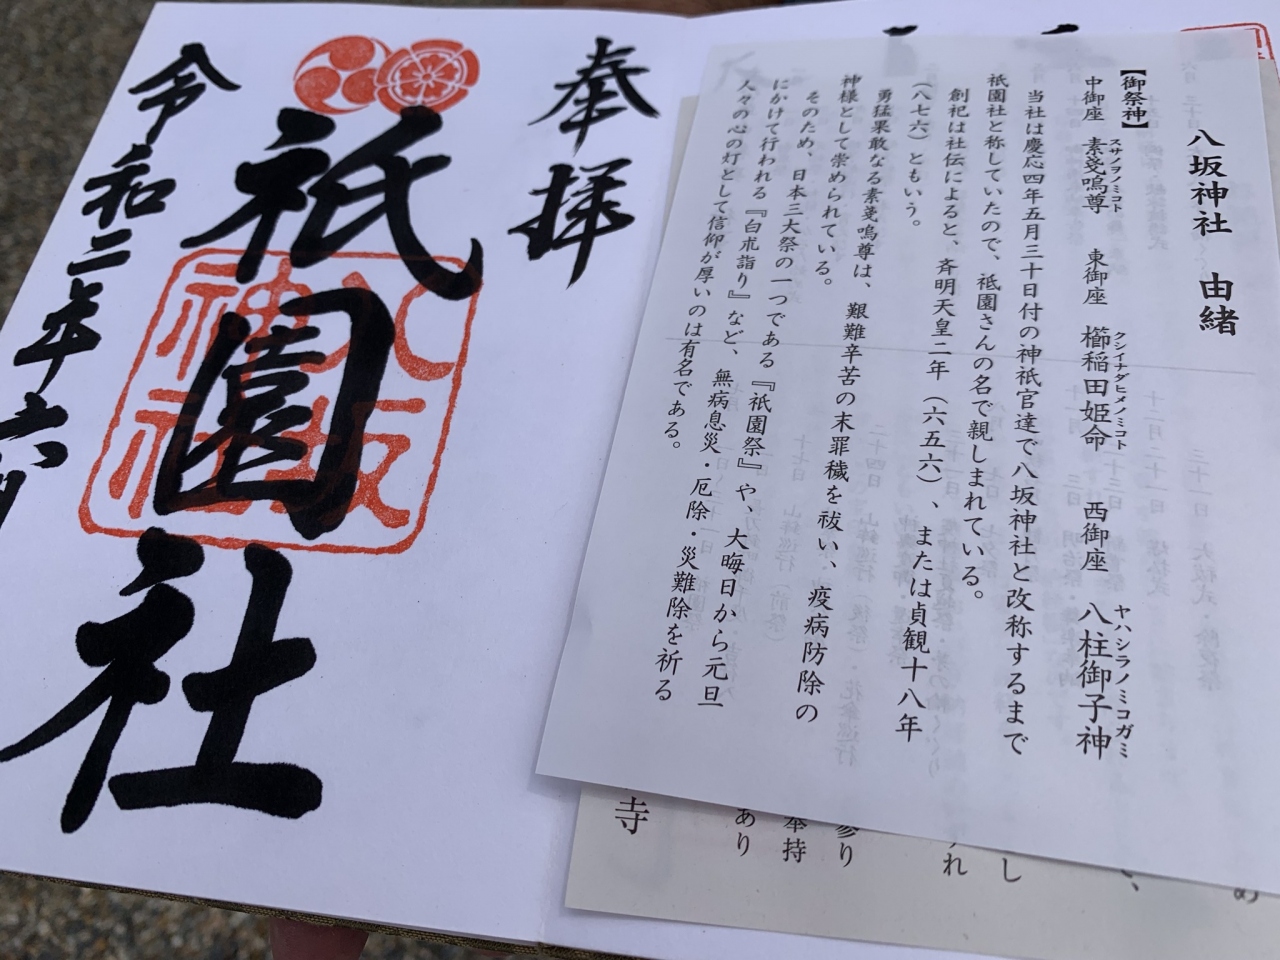 八坂神社 由緒
【御祭神】
中御座 素戔嗚尊 東御座 櫛稲田姫命 西御座 八柱御子神
スサノヲノミコト クシイナダヒメノミコト ヤハシラノミコガミ
当社は慶応四年五月三十日付の神祇官達で八坂神社と改称するまで
祇園社と称していたので、祇園さんの名で親しまれている。
創祀は社伝によると、斉明天皇二年（六五六）、または貞観十八年
（八七六）ともいう。
勇猛果敢なる素戔嗚尊は、艱難辛苦の末罪穢を祓い、疫病防除の
神様として崇められている。
そのため、日本三大祭の一つである『祇園祭』や、大晦日から元旦
にかけて行われる『白朮詣り』など、無病息災・厄除・災難除を祈る
人々の心の灯として信仰が厚いのは有名である。
し
れ
参り
奉持
あり
寺
奉拝
祇園社
八坂
神社
令和二年六月